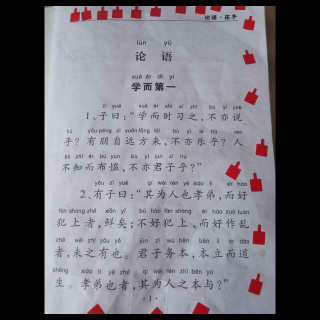 论语
lún yǔ
论 语
xué ér dì yī
学而第一
zǐ yuē xué ér shí xí zhī bú yì yuè
1、子曰：“学而时习之，不亦说
hū yǒu péng zì yuǎn fāng lái bú yì lè hū rén
乎？有朋自远方来，不亦乐乎？人
bù zhī ér bú yùn bú yì jūn zǐ hū
不知而不愠，不亦君子乎？”
yǒu zǐ yuē qí wéi rén yě xiào tì ér hào
2、有子曰：“其为人也孝弟，而好
fàn shàng zhě xiǎn yǐ bú hào fàn shàng ér hào zuò luàn
犯上者，鲜矣；不好犯上，而好作乱
zhě wèi zhī yǒu yě jūn zǐ wù běn běn lì ér dào
者，未之有也。君子务本，本立而道
shēng xiào tì yě zhě qí wéi rén zhī běn yú
生。孝弟也者，其为人之本与？”
·1·